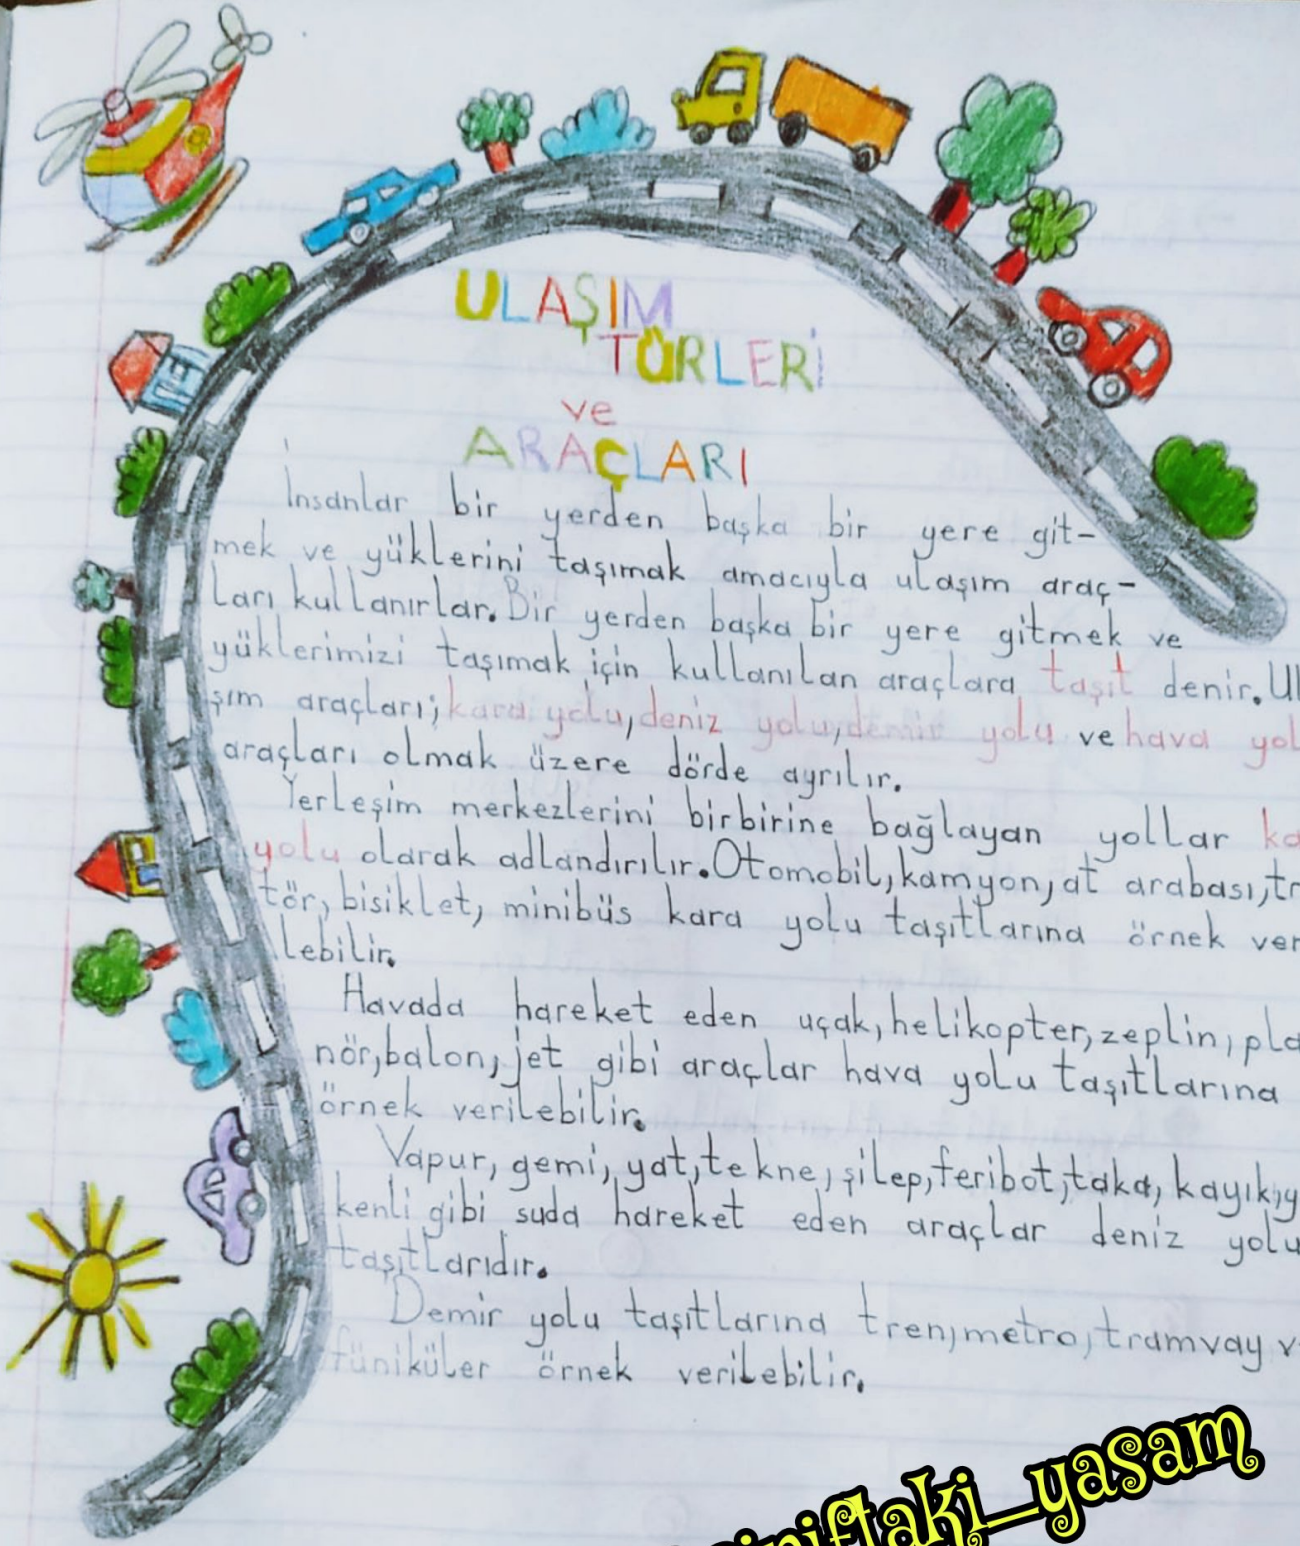 ULAŞIM
TÜRLERİ
ve
ARAÇLARI
İnsanlar bir yerden başka bir yere git-
mek ve yüklerini taşımak amacıyla ulaşım araç-
ları kullanırlar. Bir yerden başka bir yere gitmek ve
yüklerimizi taşımak için kullanılan araçlara taşıt denir. Ul
şım araçları; kara yolu, deniz yolu, demir yolu ve hava yol
araçları olmak üzere dörde ayrılır.
Yerleşim merkezlerini birbirine bağlayan yollar ka
yolu olarak adlandırılır. Otomobil, kamyon, at arabası, tr
tör, bisiklet, minibüs kara yolu taşıtlarına örnek ver
lebilir.
Havada hareket eden uçak, helikopter, zeplin, pla
nör, balon, jet gibi araçlar hava yolu taşıtlarına
örnek verilebilir.
Vapur, gemi, yat, tekne, şilep, feribot, taka, kayık, y
kenli gibi suda hareket eden araçlar deniz yolu
taşıtlarıdır.
Demir yolu taşıtlarına tren, metro, tramvay v
füniküler örnek verilebilir.
siniftaki_yasam